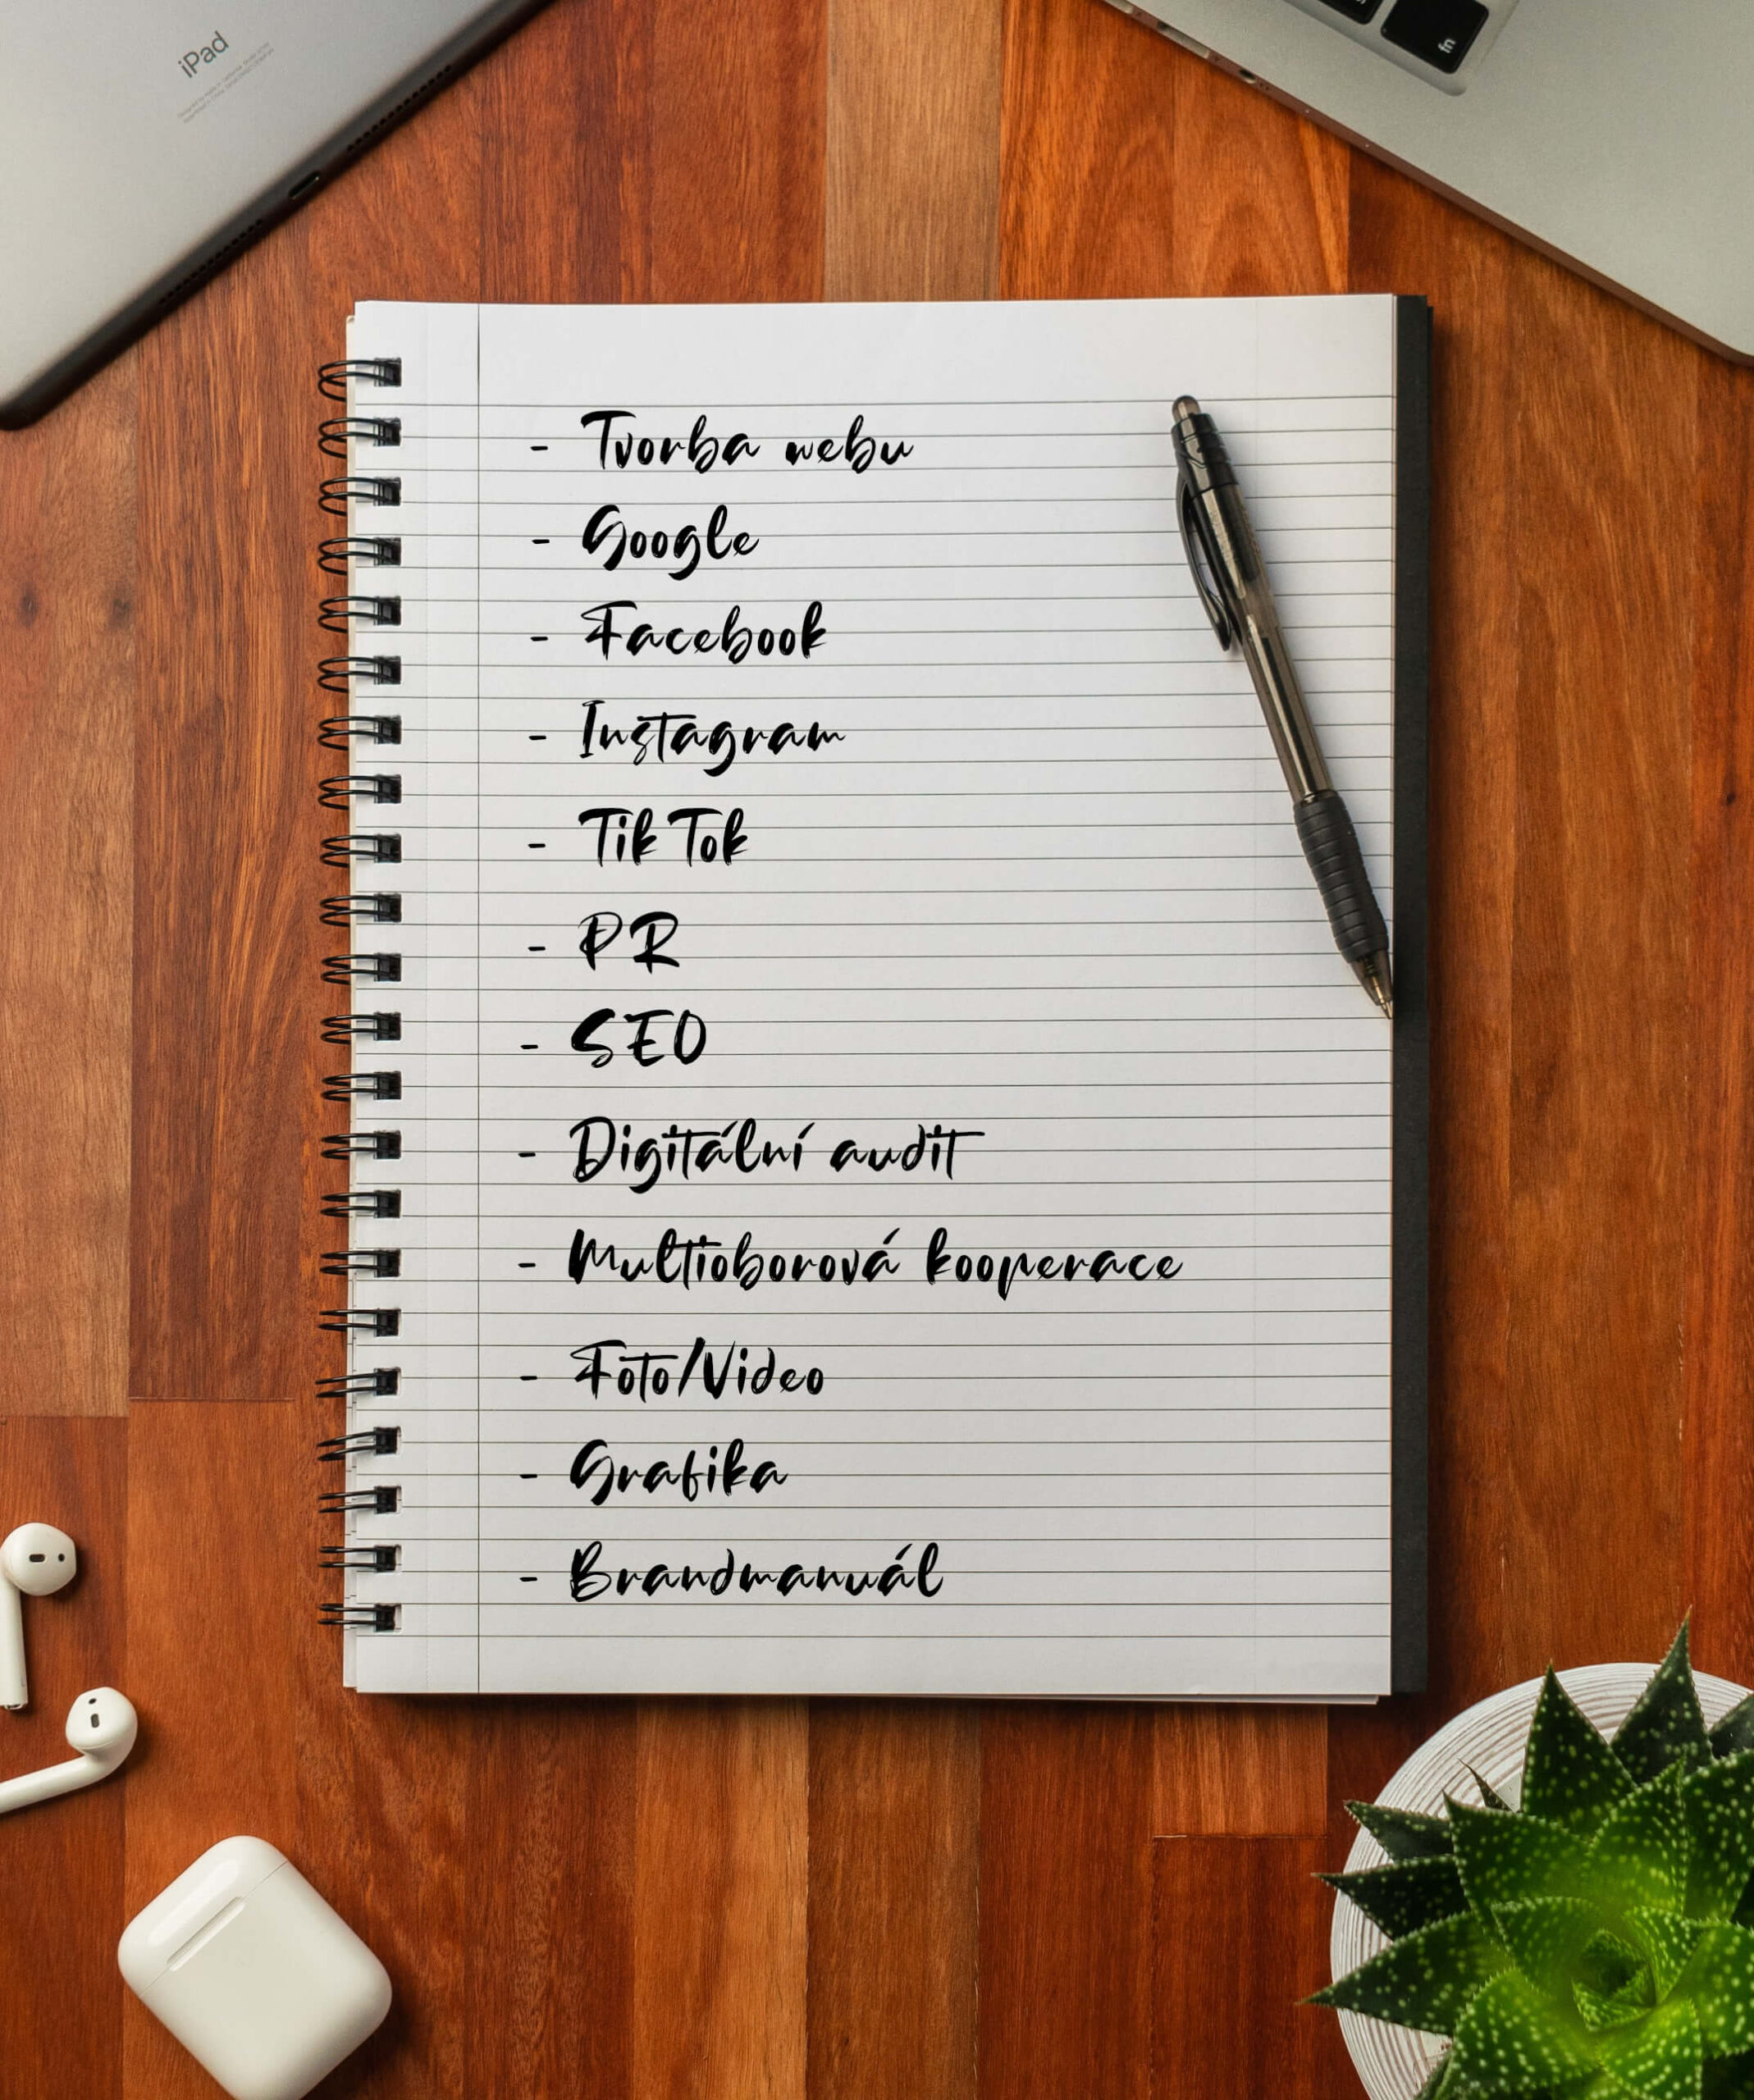 iPad
fn
- Tvorba webu
- Google
- Facebook
- Instagram
- TikTok
- PR
- SEO
- Digitální audit
- Multioborová kooperace
- Foto/Video
- Grafika
- Brandmanuál